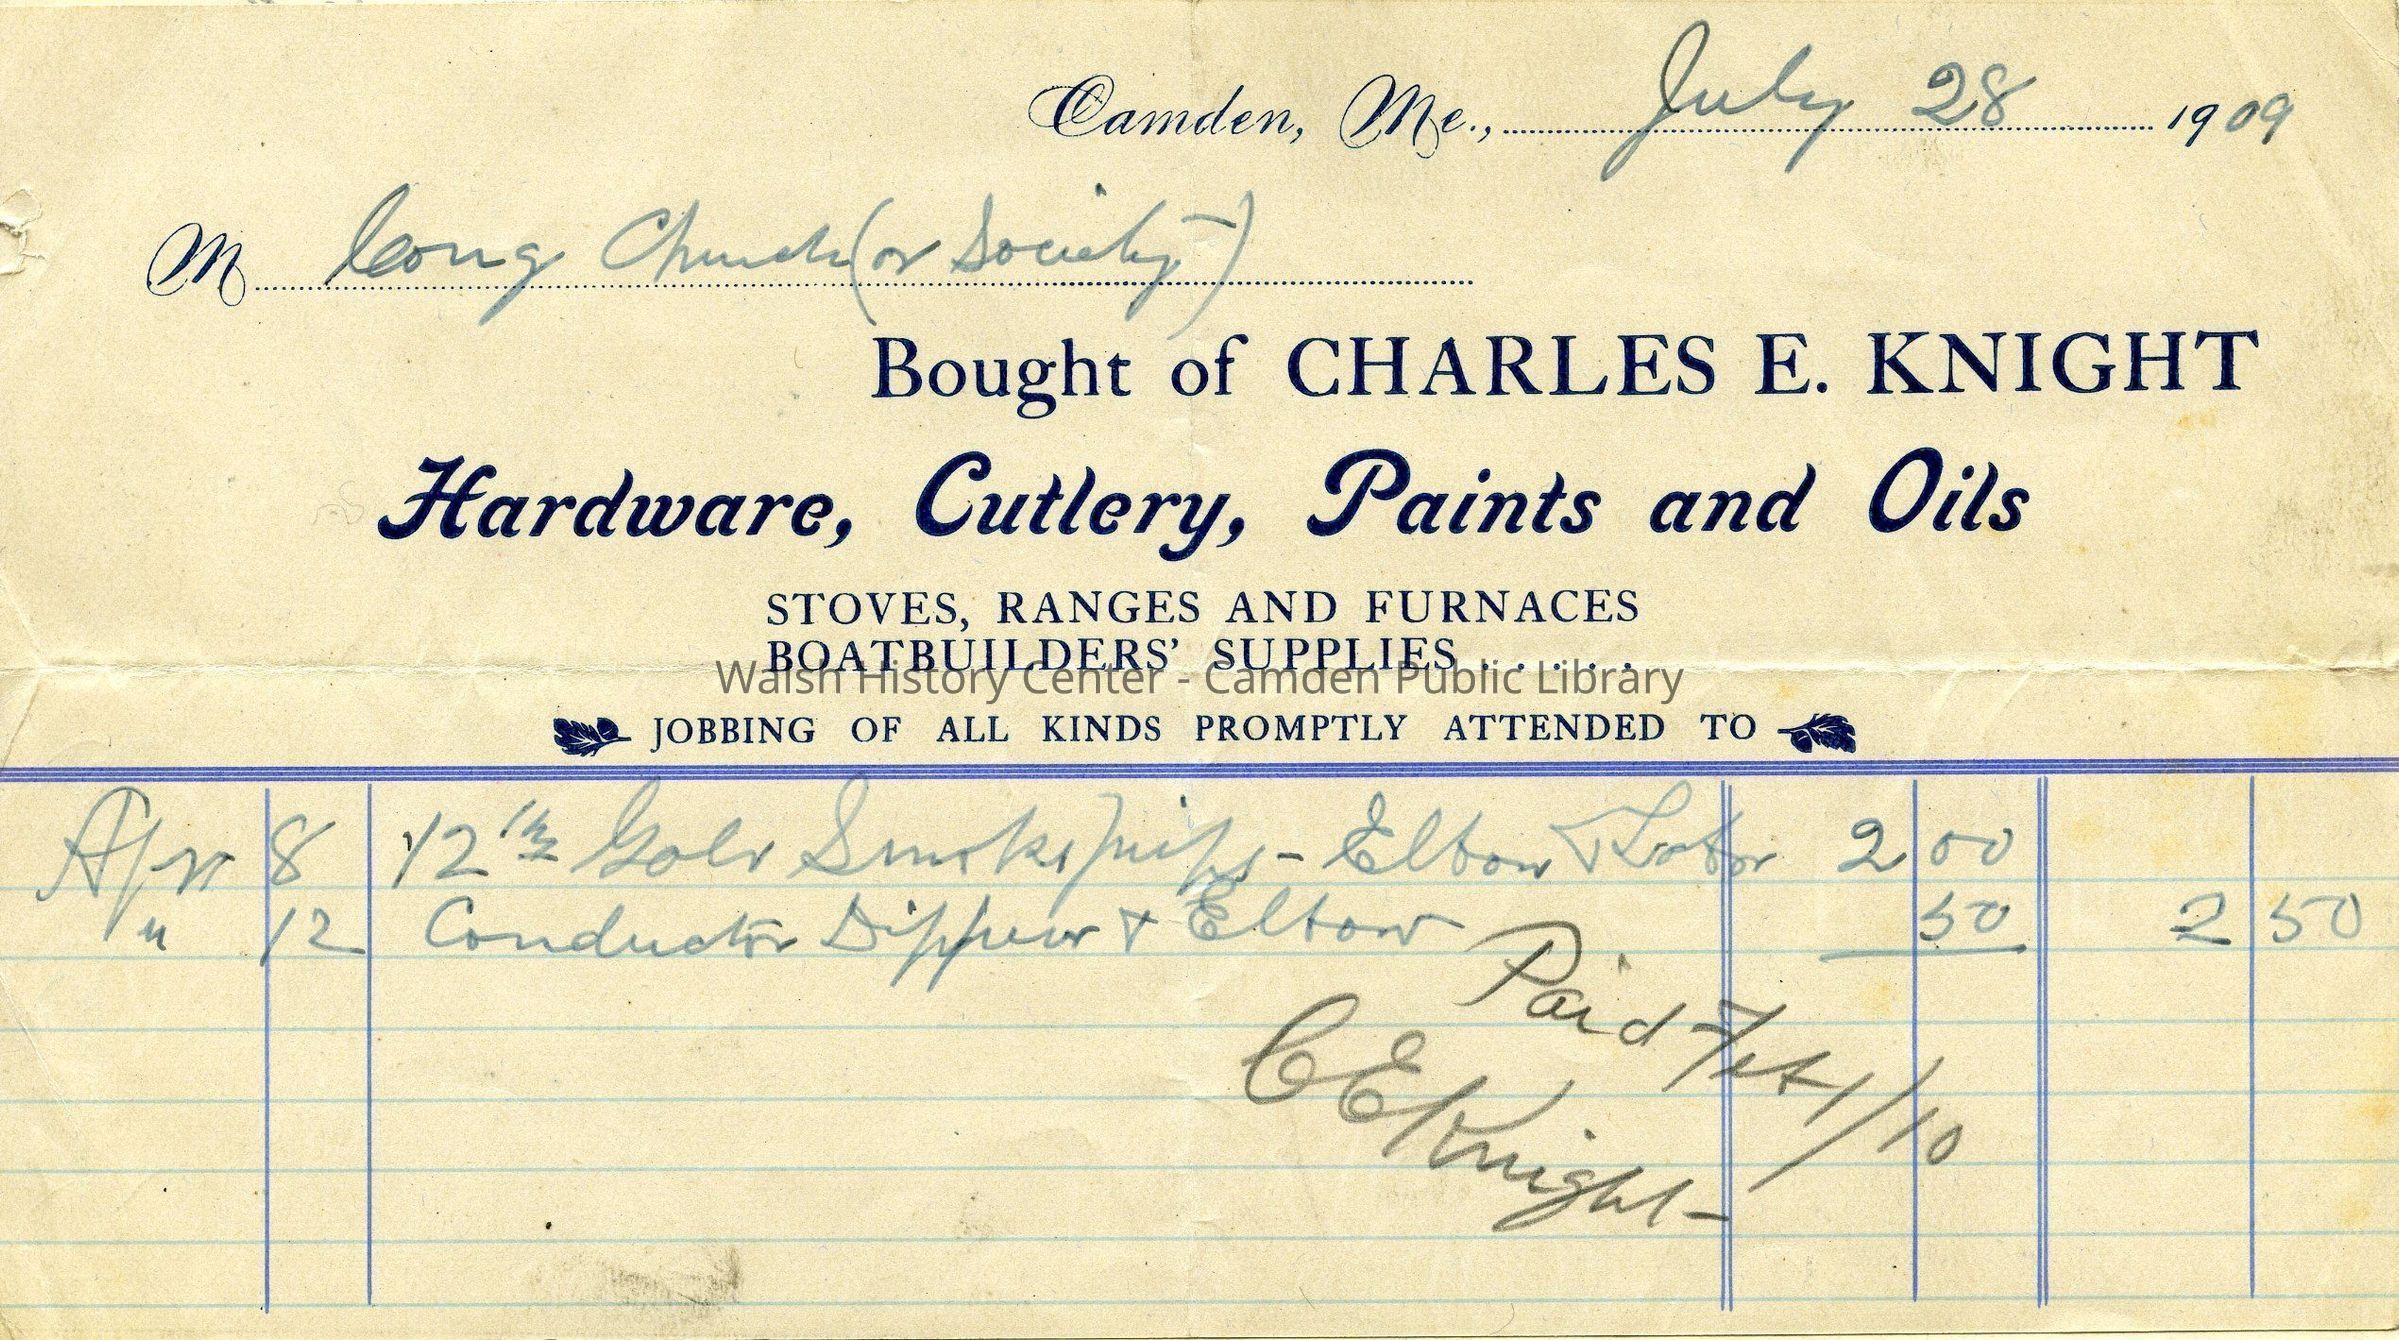 Camden, Me., July 28 1909
M Cong Church (or Society)
Bought of CHARLES E. KNIGHT
Hardware, Cutlery, Paints and Oils
STOVES, RANGES AND FURNACES
BOATBUILDERS' SUPPLIES . . . . .
Walsh History Center - Camden Public Library
JOBBING OF ALL KINDS PROMPTLY ATTENDED TO
Apr 8 12 Galv Smoke pipe - Elbow & Labor 2 00
" 12 Conductor Dipper & Elbow 50 2 50
Paid 1/10
C E Knight